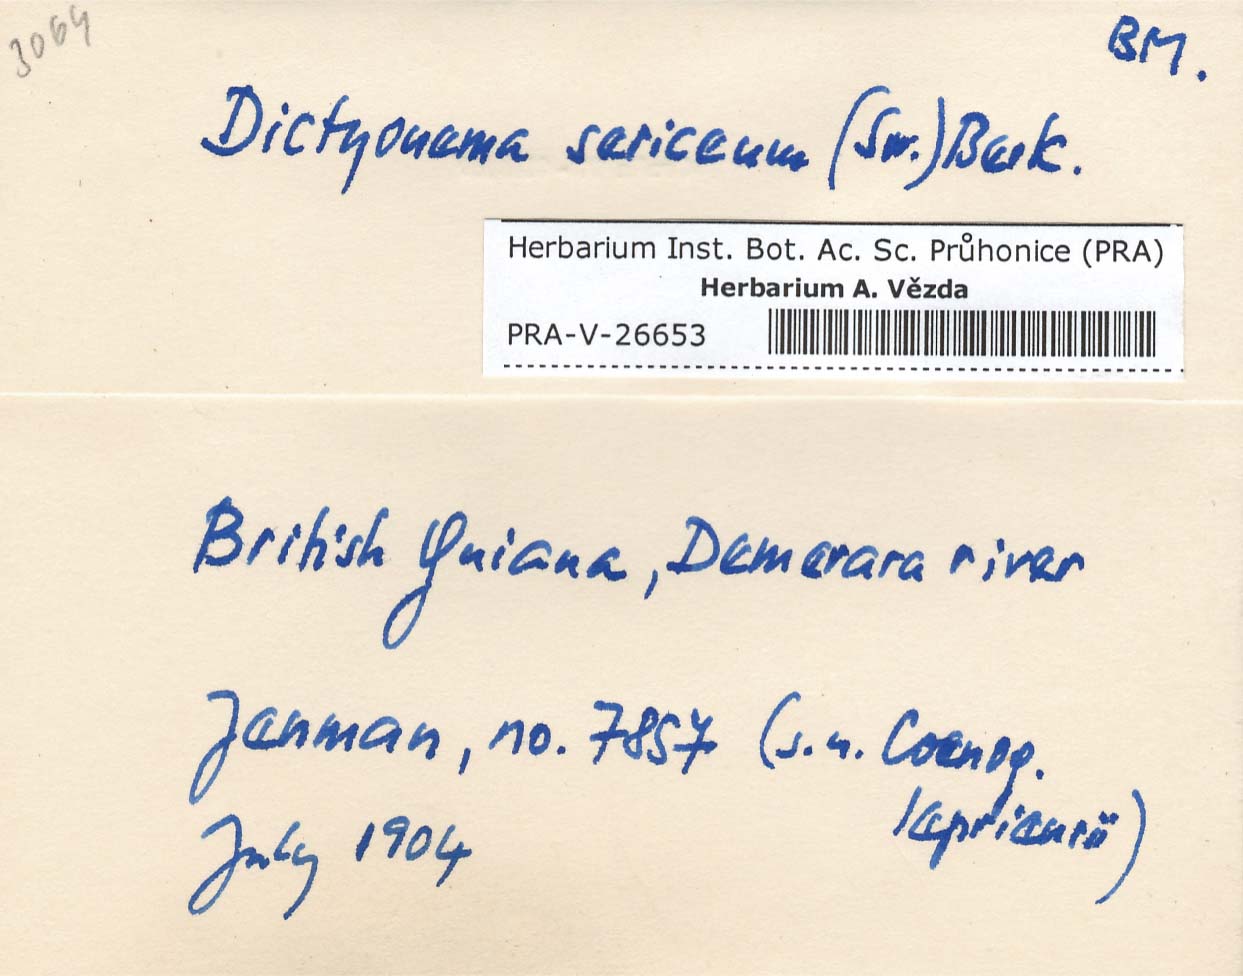 3064
BM.
Dictyonema sericeum (Sw.) Berk.
Herbarium Inst. Bot. Ac. Sc. Průhonice (PRA)
Herbarium A. Vězda
PRA-V-26653
British Guiana, Demerara river
Jenman, no. 7857 (s.n. Coenog.
leprieurii)
July 1904